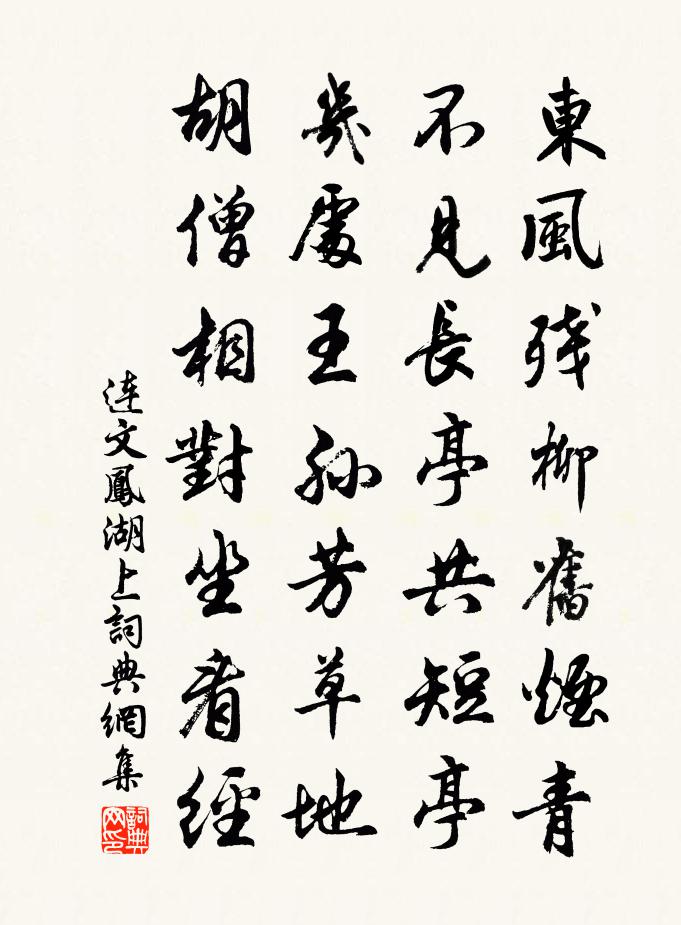 東風殘柳舊煙青
不見長亭共短亭
幾處王孫芳草地
胡僧相對坐看經
連文鳳湖上詞典網集
詞典網印